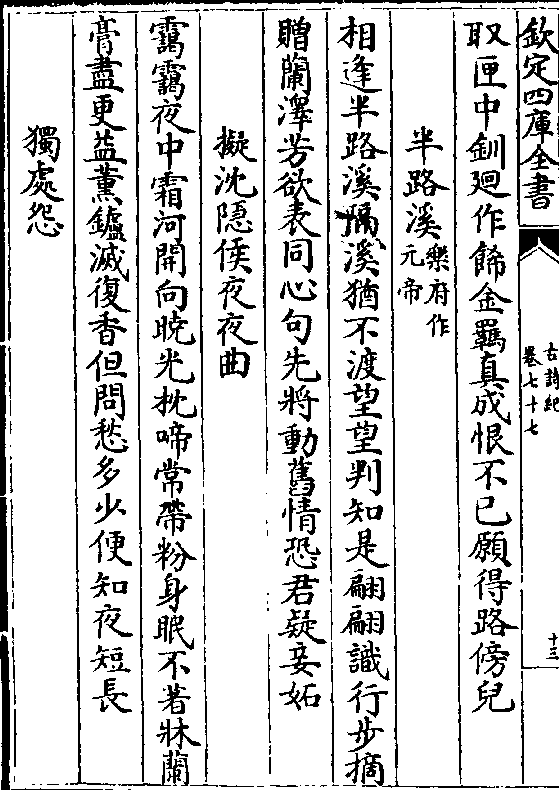 欽定四庫全書
古詩紀
卷七十七
十三
取匣中釧廻作飾金羈真成恨不已願得路傍兒
半路溪樂府作元帝
相逢半路溪隔溪猶不渡望望判知是翩翩識行步摘
贈蘭澤芳欲表同心句先將動舊情恐君疑妾妬
擬沈隠侯夜夜曲
靄靄夜中霜河開向曉光枕啼常帶粉身眠不著牀蘭
膏盡更益薰鑪滅復香但問愁多少便知夜短長
獨處怨